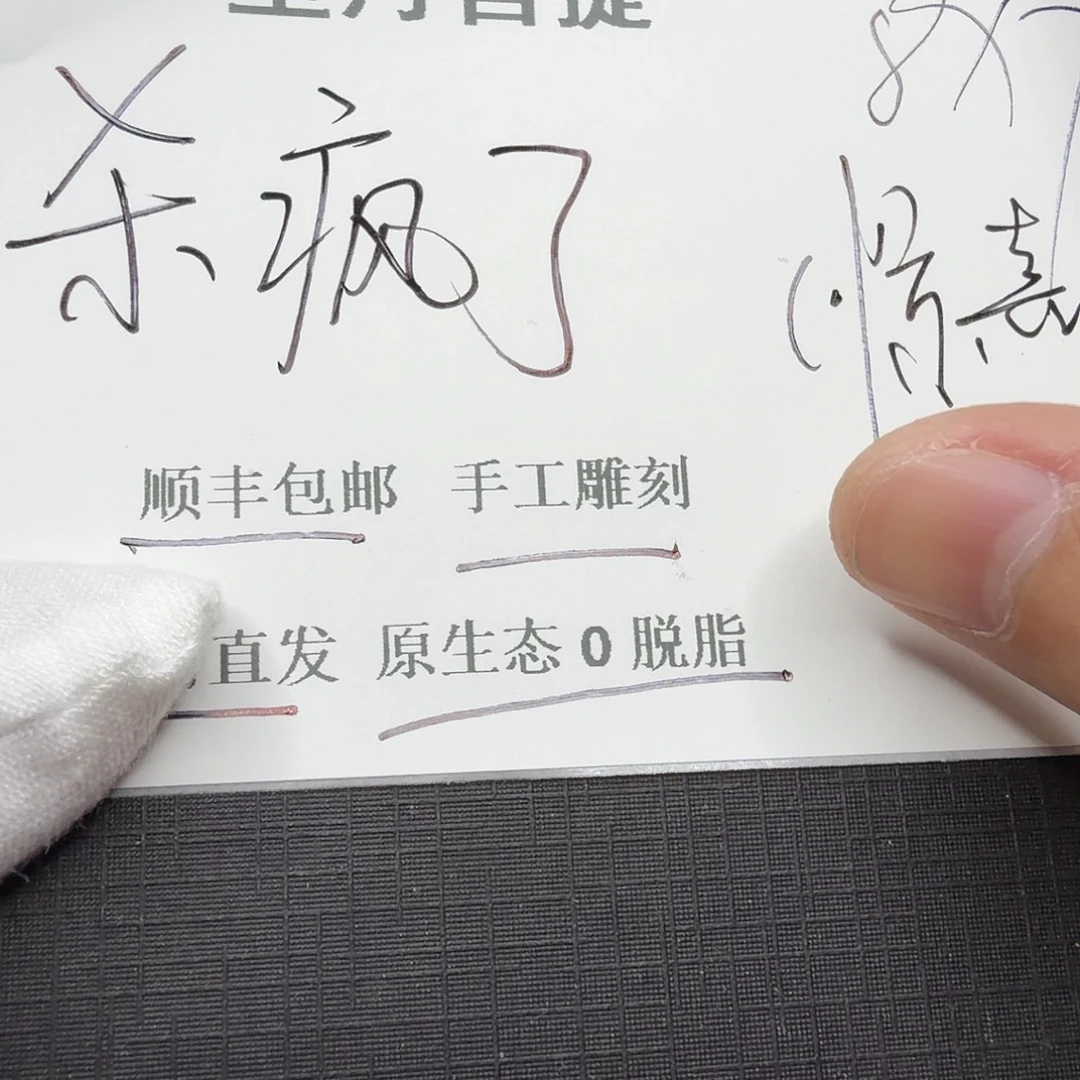 星月菩提
杀疯了
顺丰包邮 手工雕刻
直发 原生态0脱脂